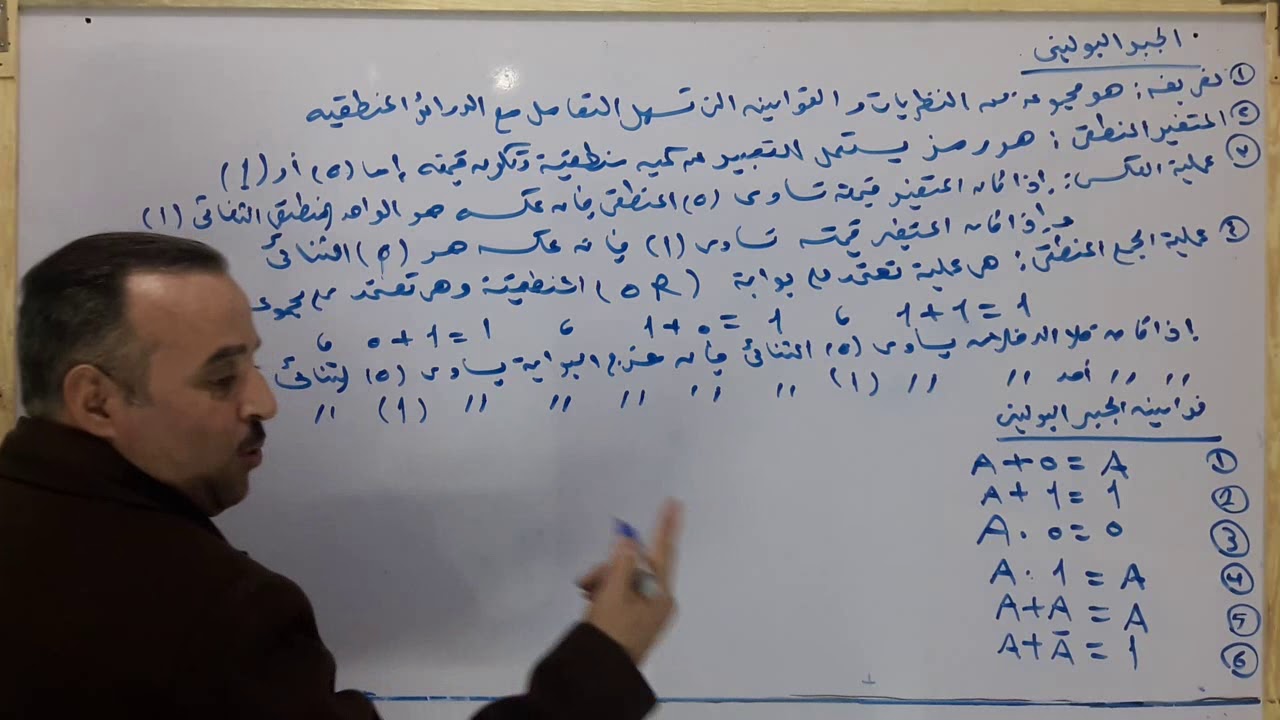 الجبر البوليني
① تعريفه: هو مجموعة من النظريات والقوانين التي تسهل التعامل مع الدوائر المنطقيه
② المتغير المنطقي: هو رمز يستعمل للتعبير عن كميه منطقية وتكون قيمته إما (0) أو (1)
③ عملية العكس: إذا كان المتغير قيمته تساوى (0) المنطقى فإن عكسه هو الواحد المنطقي الثنائي (1)
وإذا كان المتغير قيمته تساوى (1) فإنه عكسه هو (0) الثنائي
④ عملية الجمع المنطقي: هي عملية تعتمد على بوابة (OR) المنطقية وهي تعتمد على مجموعه
1+1=1 ، 1+0=1 ، 0+1=1 ،
إذا كان كلا الدخلين يساوى (0) الثنائي فإن خرج البوابة يساوى (0) الثنائي
〃 〃 أحد 〃 〃 (1) 〃 〃 〃 〃 〃 (1) 〃
قوانين الجبر البوليني
① A+0=A
② A+1=1
③ A.0=0
④ A.1=A
⑤ A+A=A
⑥ A+Ā=1